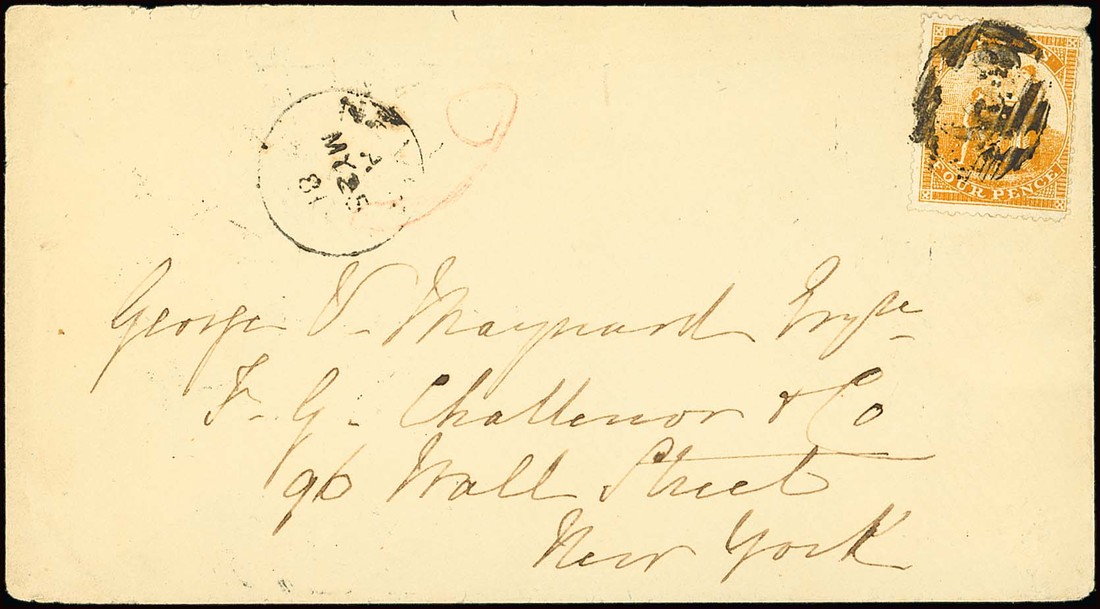 FOUR PENCE
A
MY 25
81
George V. Maynard Esqre
F. G. Challenor & Co
96 Wall Street
New York